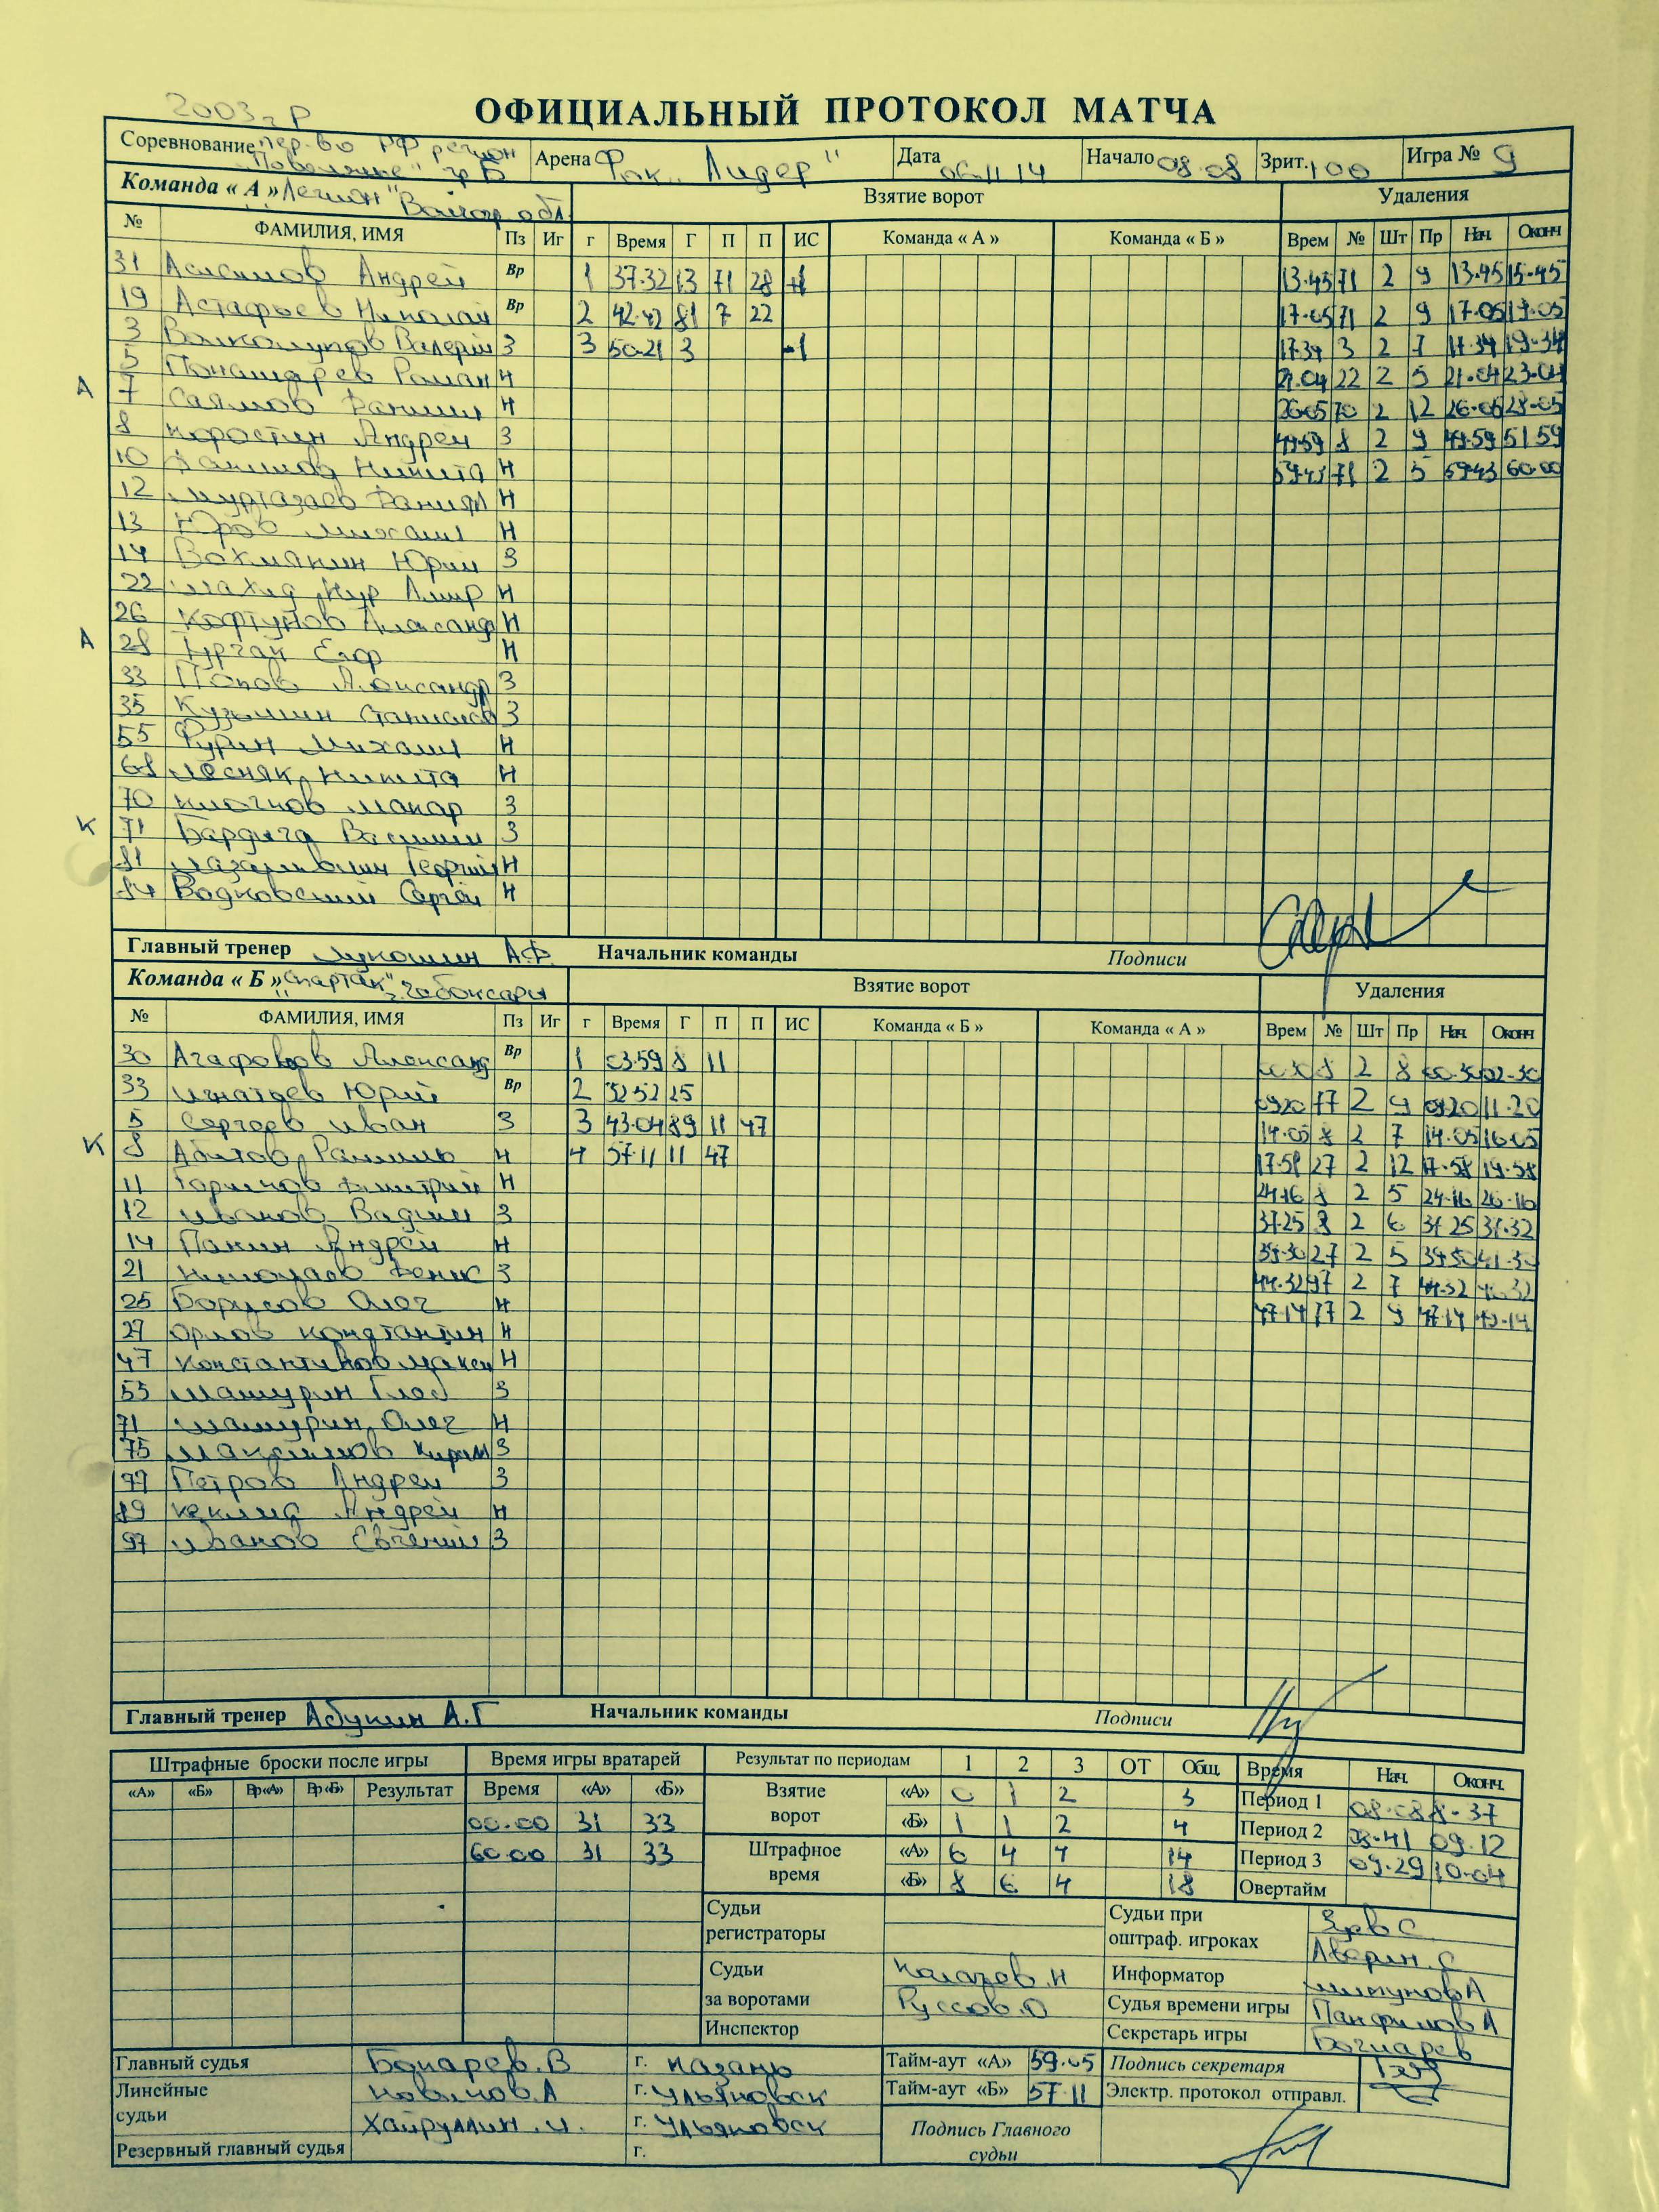 2003 г.р
ОФИЦИАЛЬНЫЙ ПРОТОКОЛ МАТЧА
Соревнование пер-во РФ регион "Поволжье" гр Б Арена Фок "Лидер" Дата 06.11.14 Начало 08.08 Зрит. 100 Игра № 9
Команда « А » "Легион" Волгог. обл. Взятие ворот Удаления
№ ФАМИЛИЯ, ИМЯ Пз Иг г Время Г П П ИС Команда « А » Команда « Б » Врем № Шт Пр Нач. Оконч
31 Андрей Вр 1 37.32 13 71 28 +1 13.45 71 2 9 13.45 15-45
19 Астафьев Николай Вр 2 42.42 81 7 22 17.05 71 2 9 17.05 19.05
3 Валерий З 3 50.21 3 -1 17.34 3 2 7 17.34 19-34
5 Роман Н 21.04 22 2 5 21.04 23.04
А 7 Саямов Н 26.05 70 2 12 26.05 28-05
8 Коростин Андрей З 49.59 8 2 9 49.59 51.59
10 Никита Н 59.43 71 2 5 59.43 60.00
12 Муртазаев Н
13 Юров Михаил Н
14 Вахмянин Юрий З
22 Н
26 Александр Н
А 28 Егор Н
33 Попов Александр З
35 Кузьмин Станислав З
55 Фурин Михаил Н
68 Лесняк Никита Н
70 Макар З
К 71 Бардыга Василий З
81 Георгий Н
84 Водковский Сергей Н
Главный тренер Лукошин А.Ф. Начальник команды Подписи
Команда « Б » "Спартак" г. Чебоксары Взятие ворот Удаления
№ ФАМИЛИЯ, ИМЯ Пз Иг г Время Г П П ИС Команда « Б » Команда « А » Врем № Шт Пр Нач. Оконч.
30 Агафонов Александр Вр 1 03.59 8 11 00.30 8 2 8 00.30 02-30
33 Игнатьев Юрий Вр 2 32.52 25 09.20 77 2 9 09.20 11.20
5 Сергеев Иван З 3 43.04 89 11 47 14.05 8 2 7 14.05 16.05
К 8 Абитов Рамиль Н 4 57.11 11 47 17.58 27 2 12 17.58 19.58
11 Горшков Дмитрий Н 24.16 8 2 5 24.16 26.16
12 Иванов Вадим З 37.25 8 2 6 37.25 37.32
14 Панин Андрей Н 39.30 27 2 5 39.30 41.30
21 Николаев Денис З 44.32 97 2 7 44.32 46.32
25 Борисов Олег Н 47.14 77 2 9 47.14 49.14
27 Орлов Константин Н
47 Константинов Макси Н
55 Машурин Глеб З
71 Машурин Олег Н
75 Максимов Кирилл З
77 Петров Андрей З
89 Андрей Н
97 Иванов Евгений З
Главный тренер Абукин А.Г Начальник команды Подписи
Штрафные броски после игры Время игры вратарей Результат по периодам 1 2 3 ОТ Общ. Время Нач. Оконч.
«А» «Б» Вр«А» Вр«Б» Результат Время «А» «Б» Взятие ворот «А» 0 1 2 3 Период 1 08.08 8-37
00.00 31 33 «Б» 1 1 2 4 Период 2 08.41 09.12
60.00 31 33 Штрафное время «А» 6 4 4 14 Период 3 09.29 10-04
«Б» 8 6 4 18 Овертайм
Судьи регистраторы Судьи при оштраф. игроках С
Аверин.С
Судьи за воротами Калачев.Н Информатор Шипунов А
Руссов.О Судья времени игры Панфилов А
Инспектор Секретарь игры Бочкарев
Главный судья Бокарев.В г. Казань Тайм-аут «А» 59.05 Подпись секретаря
Линейные судьи Новиков.А г. Ульяновск Тайм-аут «Б» 57.11 Электр. протокол отправл.
Хайруллин.И. г. Ульяновск Подпись Главного судьи
Резервный главный судья г.